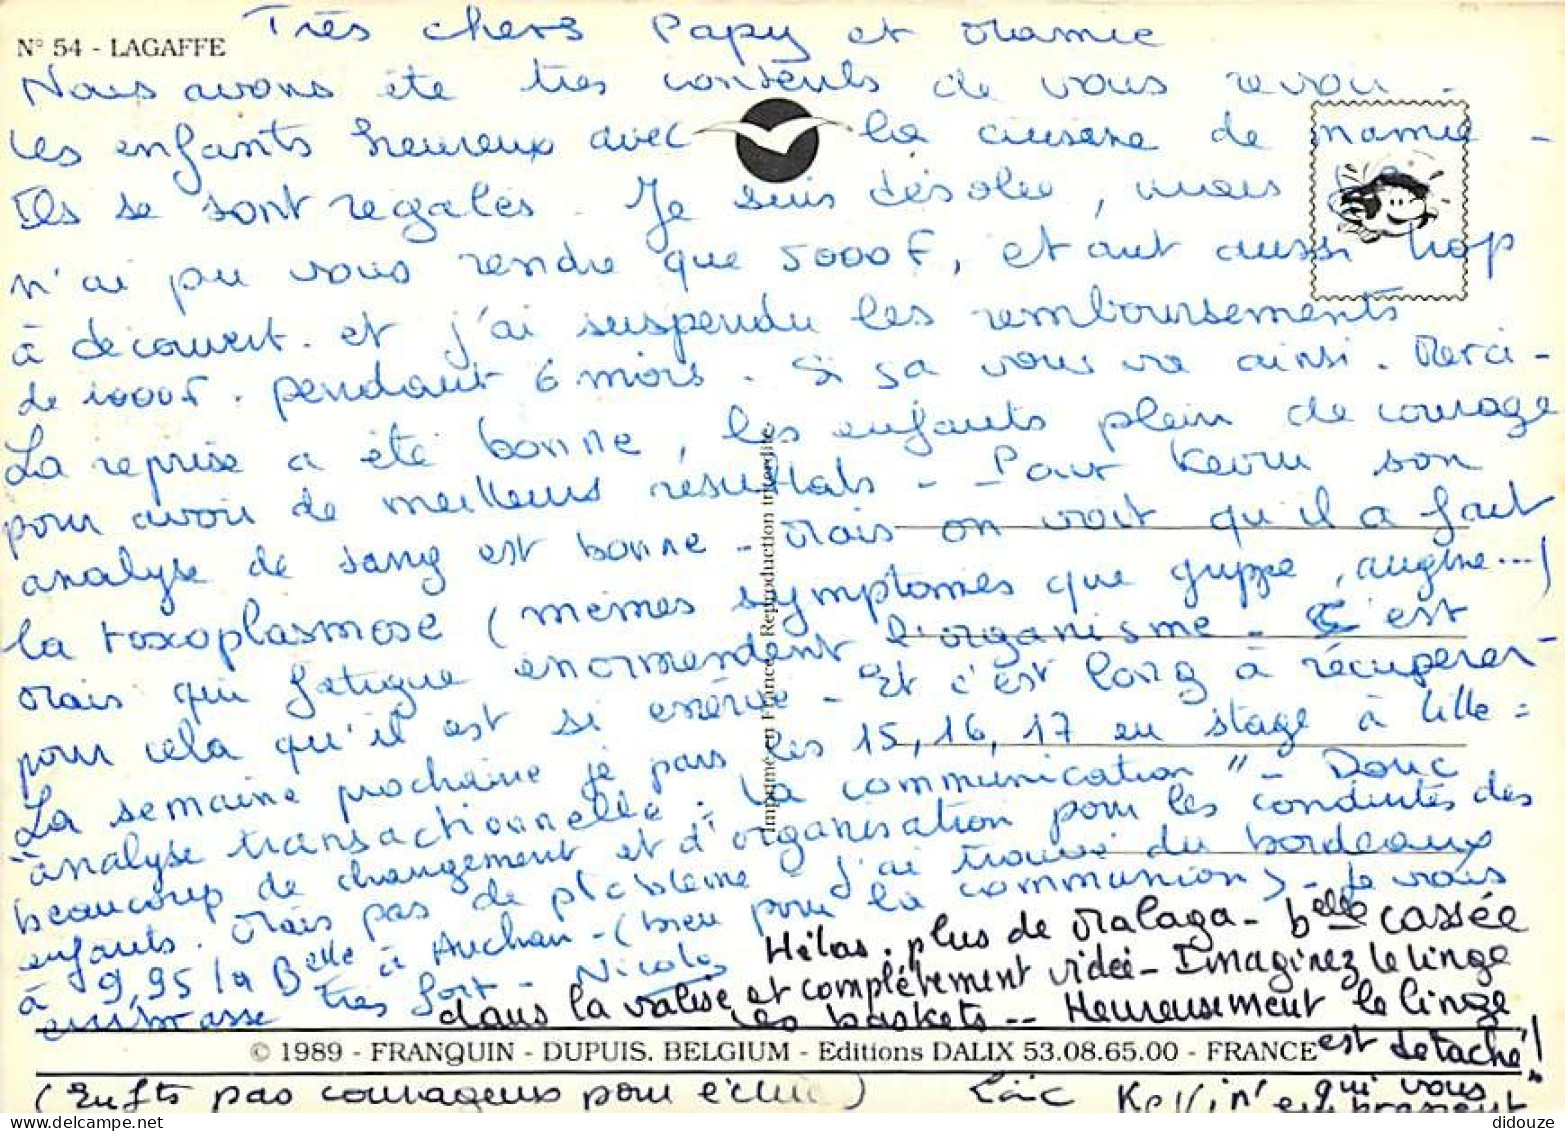 Très chers Papy et Mamie
N° 54 - LAGAFFE
Nous avons été très contents de vous revoir -
Les enfants heureux avec la cuisine de mamie -
Ils se sont régalés - Je suis désolée, mais
n'ai pu vous rendre que 5000F, étant aussi trop
à découvert. et j'ai suspendu les remboursements
de 1000F. pendant 6 mois. Si ça vous va ainsi. Merci -
La reprise a été bonne, les enfants plein de courage
pour avoir de meilleurs résultats - - Pour Kevin son
analyse de sang est bonne - Mais on voit qu'il a fait
la toxoplasmose (mêmes symptomes que grippe, angine...)
Mais qui fatigue enormement l'organisme - C'est
pour cela qu'il est si enervé - Et c'est long à récuperer -
La semaine prochaine je pars les 15, 16, 17 en stage à Lille =
"analyse transactionnelle. la communication" - Donc
beaucoup de changement et d'organisation pour les conduites des
enfants. Mais pas de problème. J'ai trouvé du bordeaux
à 9,95 la Belle à Auchan - (bien pour la communion) - Je vous
embrasse très fort - Nicole
Hélas. plus de Malaga - belle cassée
dans la valise et complètement vidée - Imaginez le linge
les baskets -- Heureusement le linge
est detaché !
Imprimé en France - Reproduction interdite
© 1989 - FRANQUIN - DUPUIS. BELGIUM - Editions DALIX 53.08.65.00 - FRANCE
(Enfts pas courageux pour écrire) Loïc Kevin qui vous
embrassent
didouze